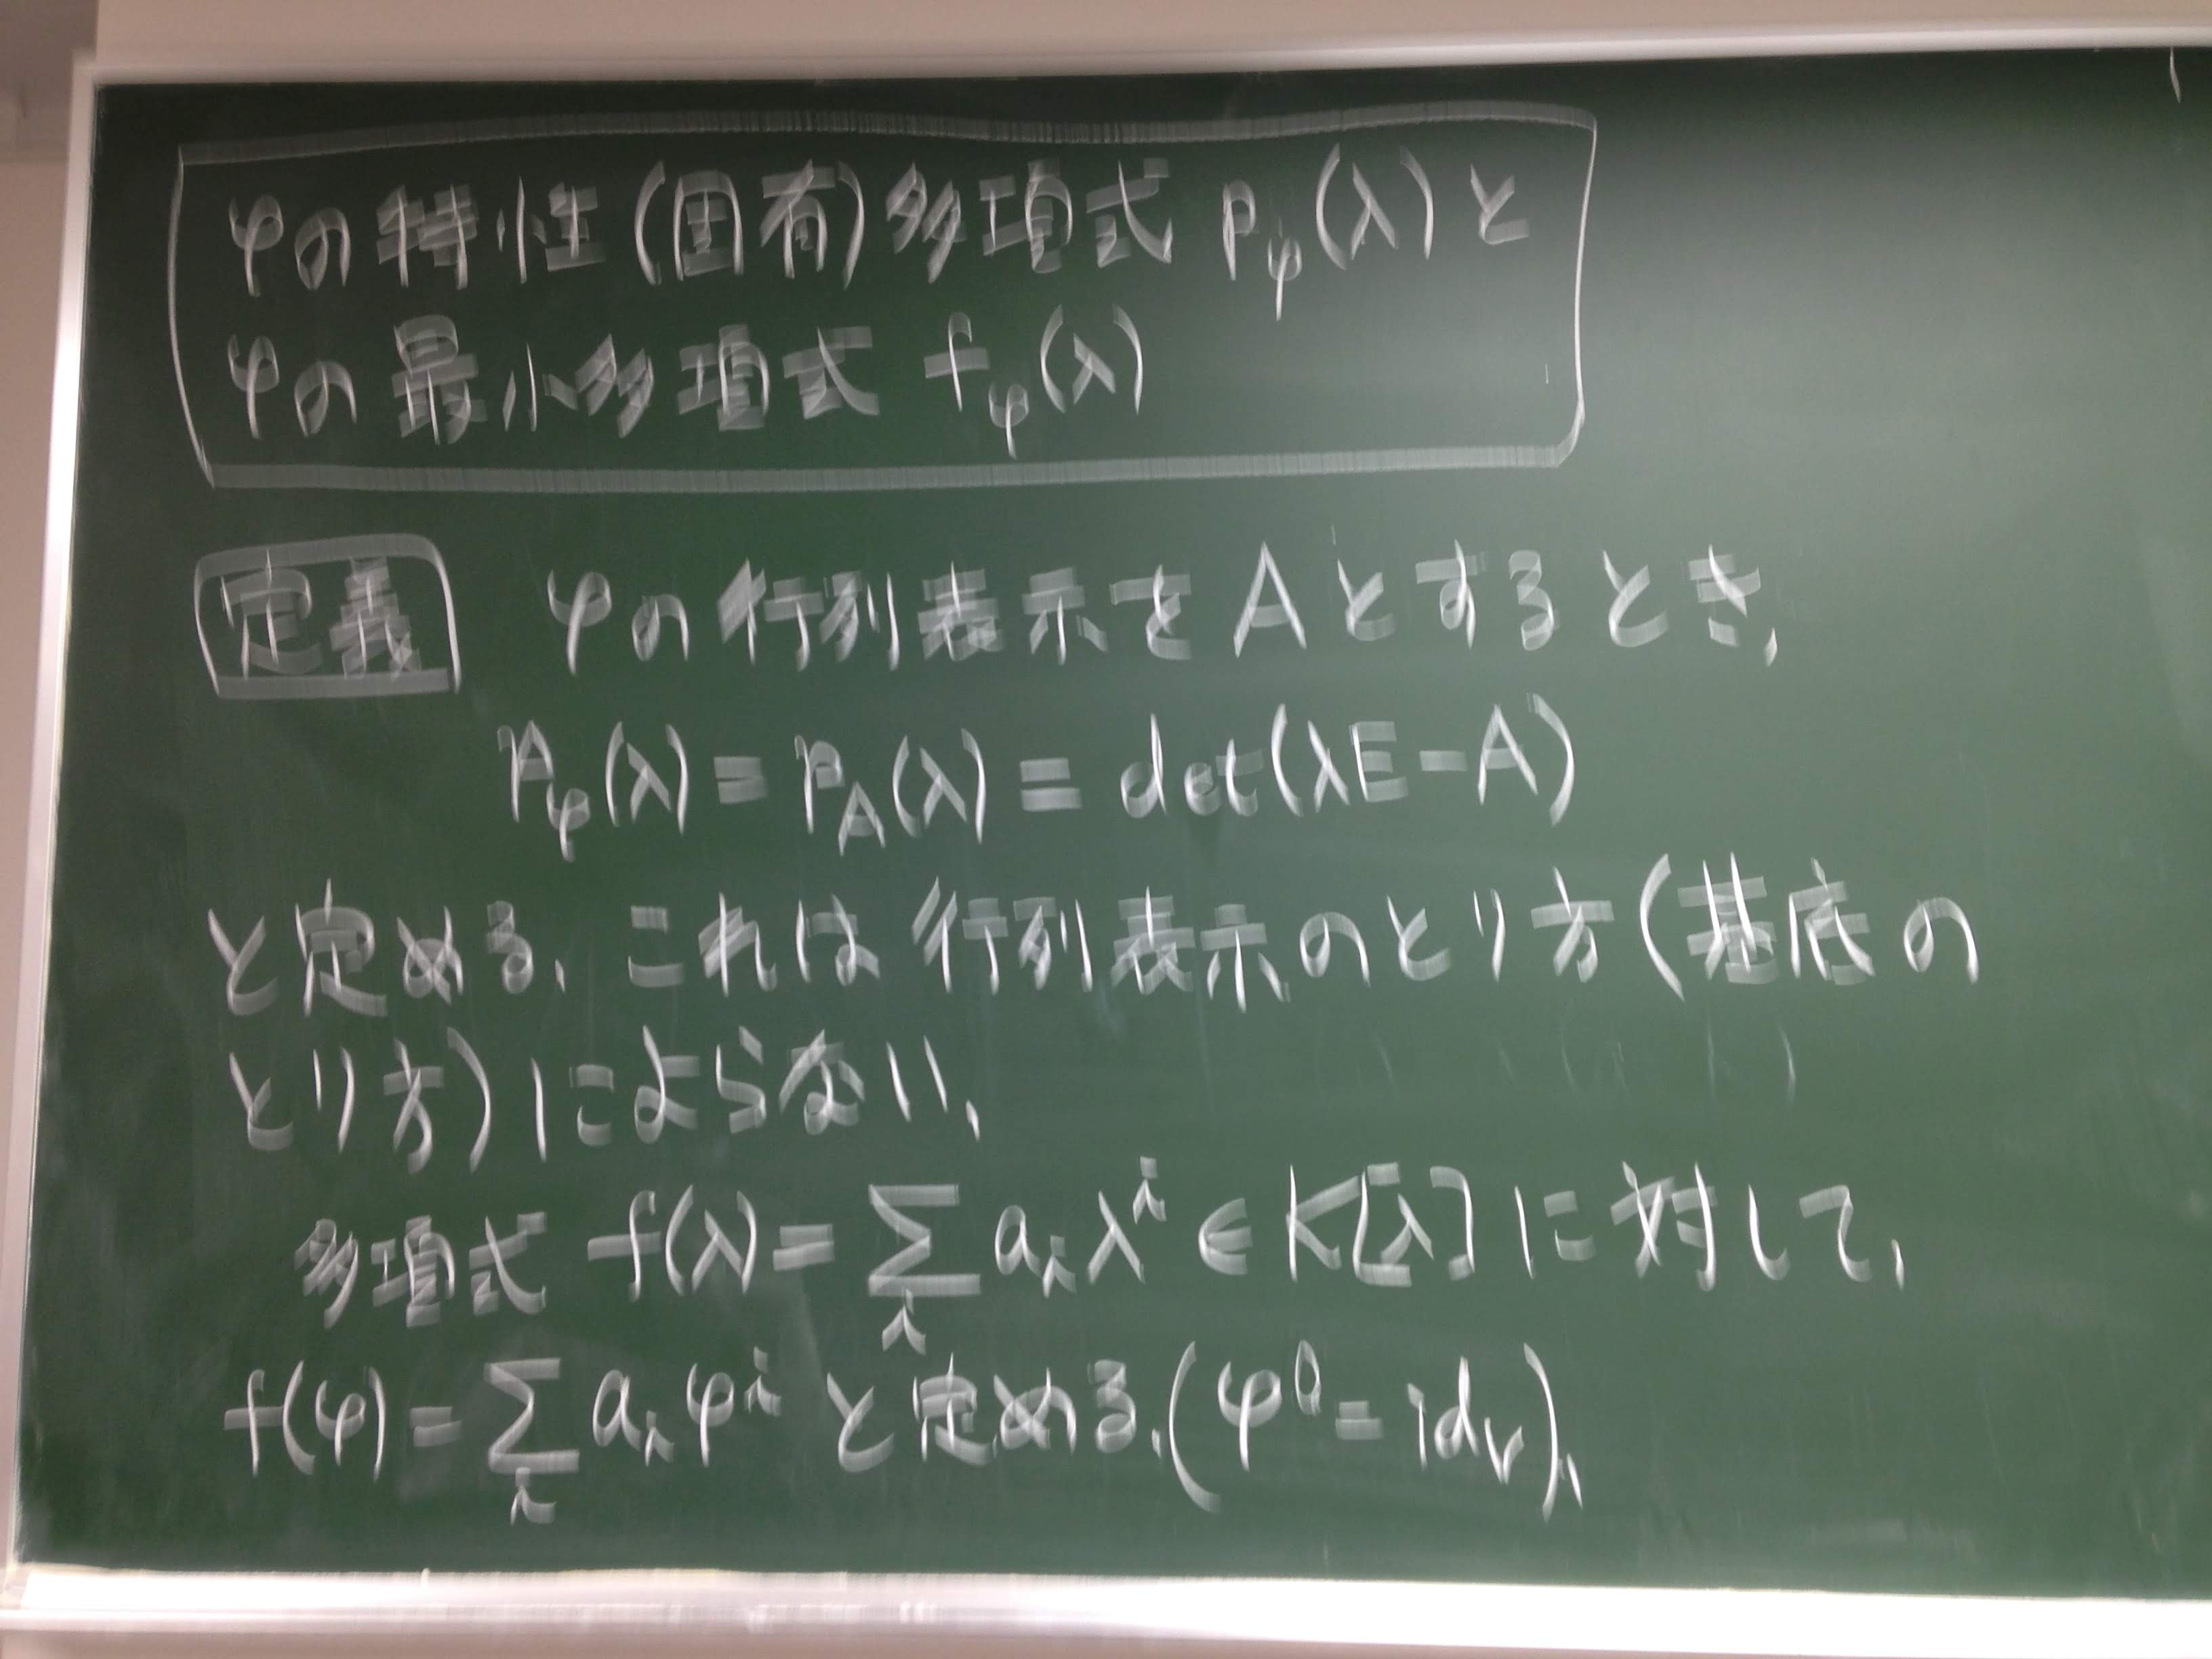 φの特性(固有)多項式 p_φ(λ)と
φの最小多項式 f_φ(λ)
定義 φの行列表示をAとするとき,
p_φ(λ) = p_A(λ) = det(λE - A)
と定める. これは行列表示のとり方(基底の
とり方)によらない.
多項式 f(λ) = Σ_i a_i λ^i ∈ K[λ] に対して,
f(φ) = Σ_i a_i φ^i と定める.(φ^0 = id_V).